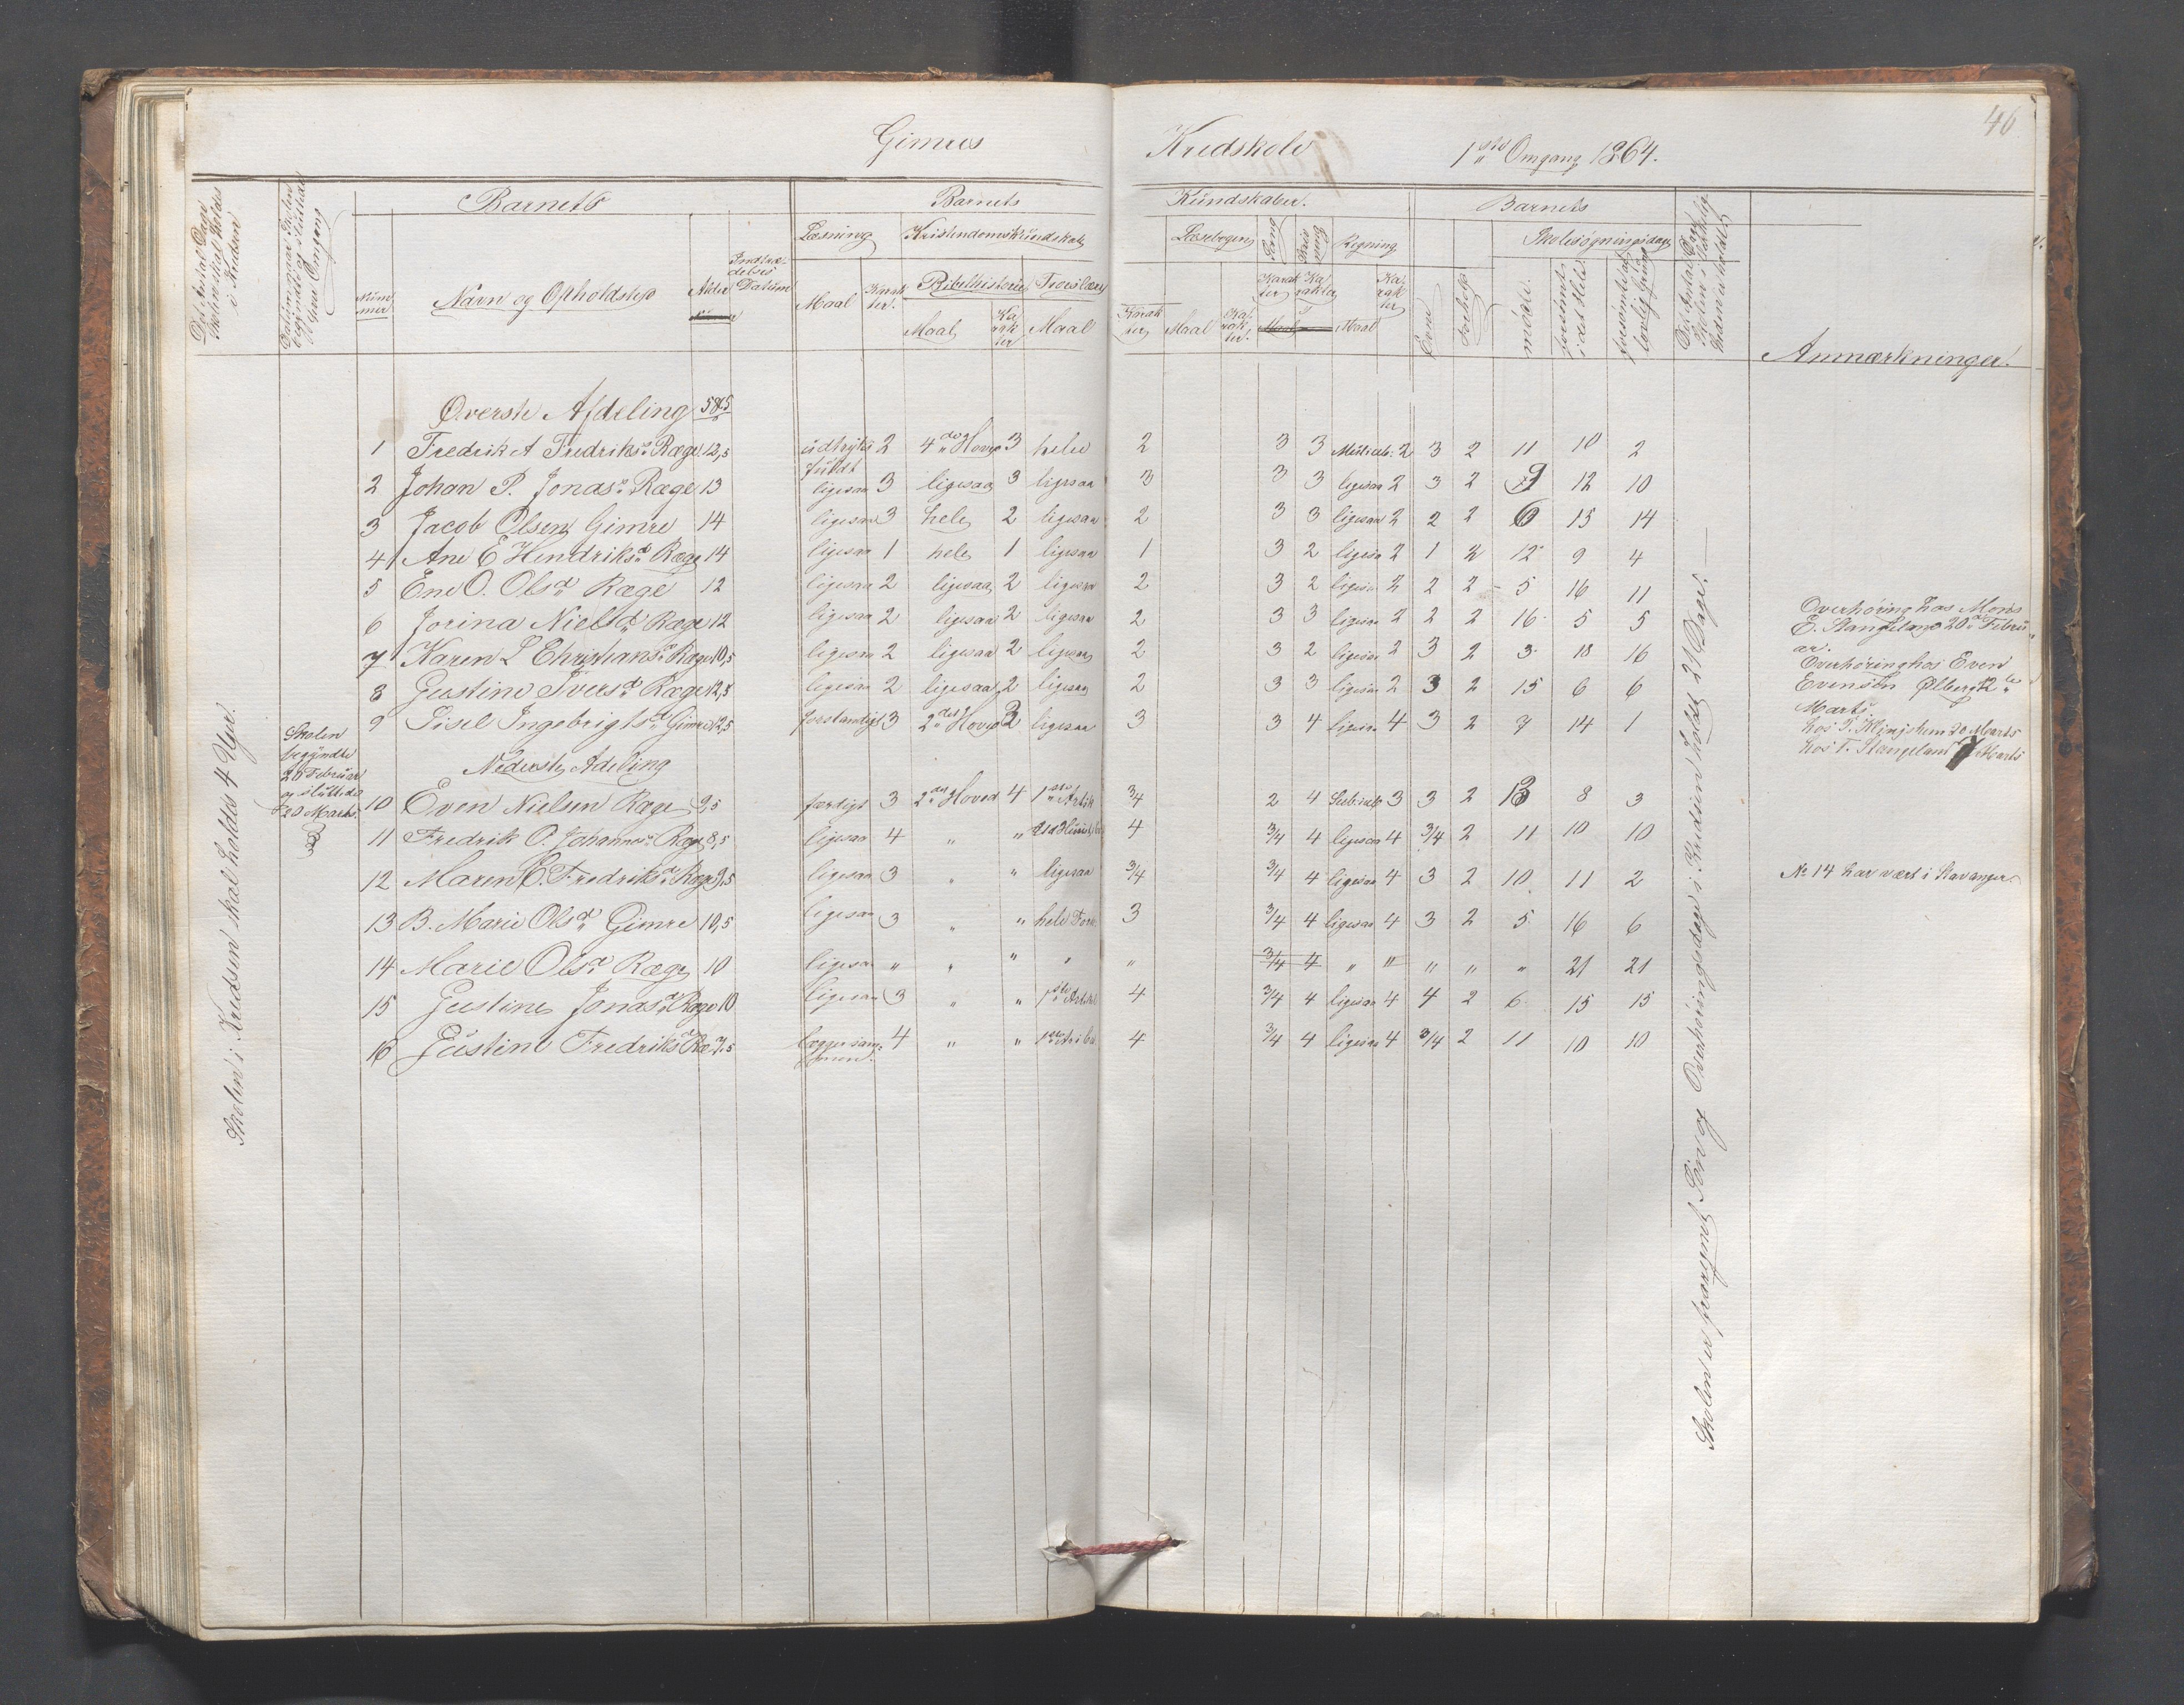 46
Gimres Kredskole 1ste Omgang 1864.
Det Antal Dage Skolen skal holdes i Kredsen
Datum naar Skolen begyndte og sluttede hver Omgang
Barnets
Nummer
Navn og Opholdsted
Alder
Indtrædelses Datum
Barnets Kundskaber.
Læsning
Maal
Karakter.
Kristendomskundskab
Bibelhistorie
Maal
Karakter
Troeslære
Maal
Karakter
Læsebogen
Maal
Karakter.
Sang
Karakter
Skrivning
Karakter
Regning
Maal
Karakter
Barnets
Evne
Forhold
Skolesøgningsdage
mødte.
forsømte i det Hele.
forsømte af lovlig Grund
Det Antal Dage Skolen i Virkeligheden er holdt
Anmærkninger.
Skolen i Kredsen skal holdes 4 Uger.
Skolen
begyndte
20 Februar
og sluttede
20 Marts.
Øverste Afdeling
1 Fredrik A Fredriks. Ræge 12,5 udtryksfuldt 2 4de Hoved 3 hele 2 3 3 2 3 2 11 10 2
2 Johan P. Jonas. Ræge 13 ligesaa 3 ligesaa 3 ligesaa 3 3 3 ligesaa 2 3 2 9 12 10
3 Jacob Olsen Gimre 14 ligesaa 3 hele 2 ligesaa 2 3 3 ligesaa 2 2 2 6 15 14
4 Ane E Hendriksd. Ræge 14 ligesaa 1 hele 1 ligesaa 1 3 2 ligesaa 2 1 2 12 9 4
5 Ene O. Olsd. Ræge 12 ligesaa 2 ligesaa 2 ligesaa 2 3 2 ligesaa 2 2 2 5 16 11
6 Jorina Nielsd. Ræge 12 ligesaa 2 ligesaa 2 ligesaa 2 3 3 ligesaa 2 2 2 16 5 5
7 Karen L Christiansd. Ræge 10,5 ligesaa 2 ligesaa 2 ligesaa 2 3 2 ligesaa 2 3 2 3 18 16
8 Gustine Iversd. Ræge 12,5 ligesaa 2 ligesaa 2 ligesaa 2 3 3 ligesaa 2 3 2 15 6 6
9 Sisel Ingebrigtsd. Gimre 12,5 forstandigt 3 2det Hoved 2 ligesaa 3 3 4 ligesaa 4 3 2 7 14 1
Nederste Adeling
10 Even Nielsen Ræge 9,5 færdigt 3 2det Hoved 4 1ste Artik 3/4 2 4 3 3 2 13 8 3
11 Fredrik O. Johannes. Ræge 8,5 ligesaa 4 " " 4 3/4 4 ligesaa 4 3/4 2 11 10 10
12 Maren C. Fredriksd. Ræge 9,5 ligesaa 3 " " ligesaa 3/4 3/4 4 ligesaa 4 3 2 10 11 2
13 B. Marie Olsd. Gimre 10,5 ligesaa 3 " " hele Fork. 3 3/4 4 ligesaa 4 3 2 5 16 6
14 Marie Olsd. Ræge 10 ligesaa " " " " " 3/4 4 " " " " " 21 21
15 Gustine Jonasd. Ræge 10 ligesaa 3 " " 1ste Artikel 4 3/4 4 ligesaa 4 4 2 6 15 15
16 Gustine Fredriksd. Ræ 7,5 lægger sammen. 4 " " 4 3/4 4 ligesaa 4 3/4 2 11 10 10
Skolen er fraregnet Søn og Overhøringsdage i Kredsen holdt 21 Dage.
Overhøring hos Mons
E. Stangeland 20de Febru
ar.
Overhøring hos Even
Evensen Ølberg 12te
Marts.
hos T. Stangeland Marts
No 14 har vært i Stavanger.